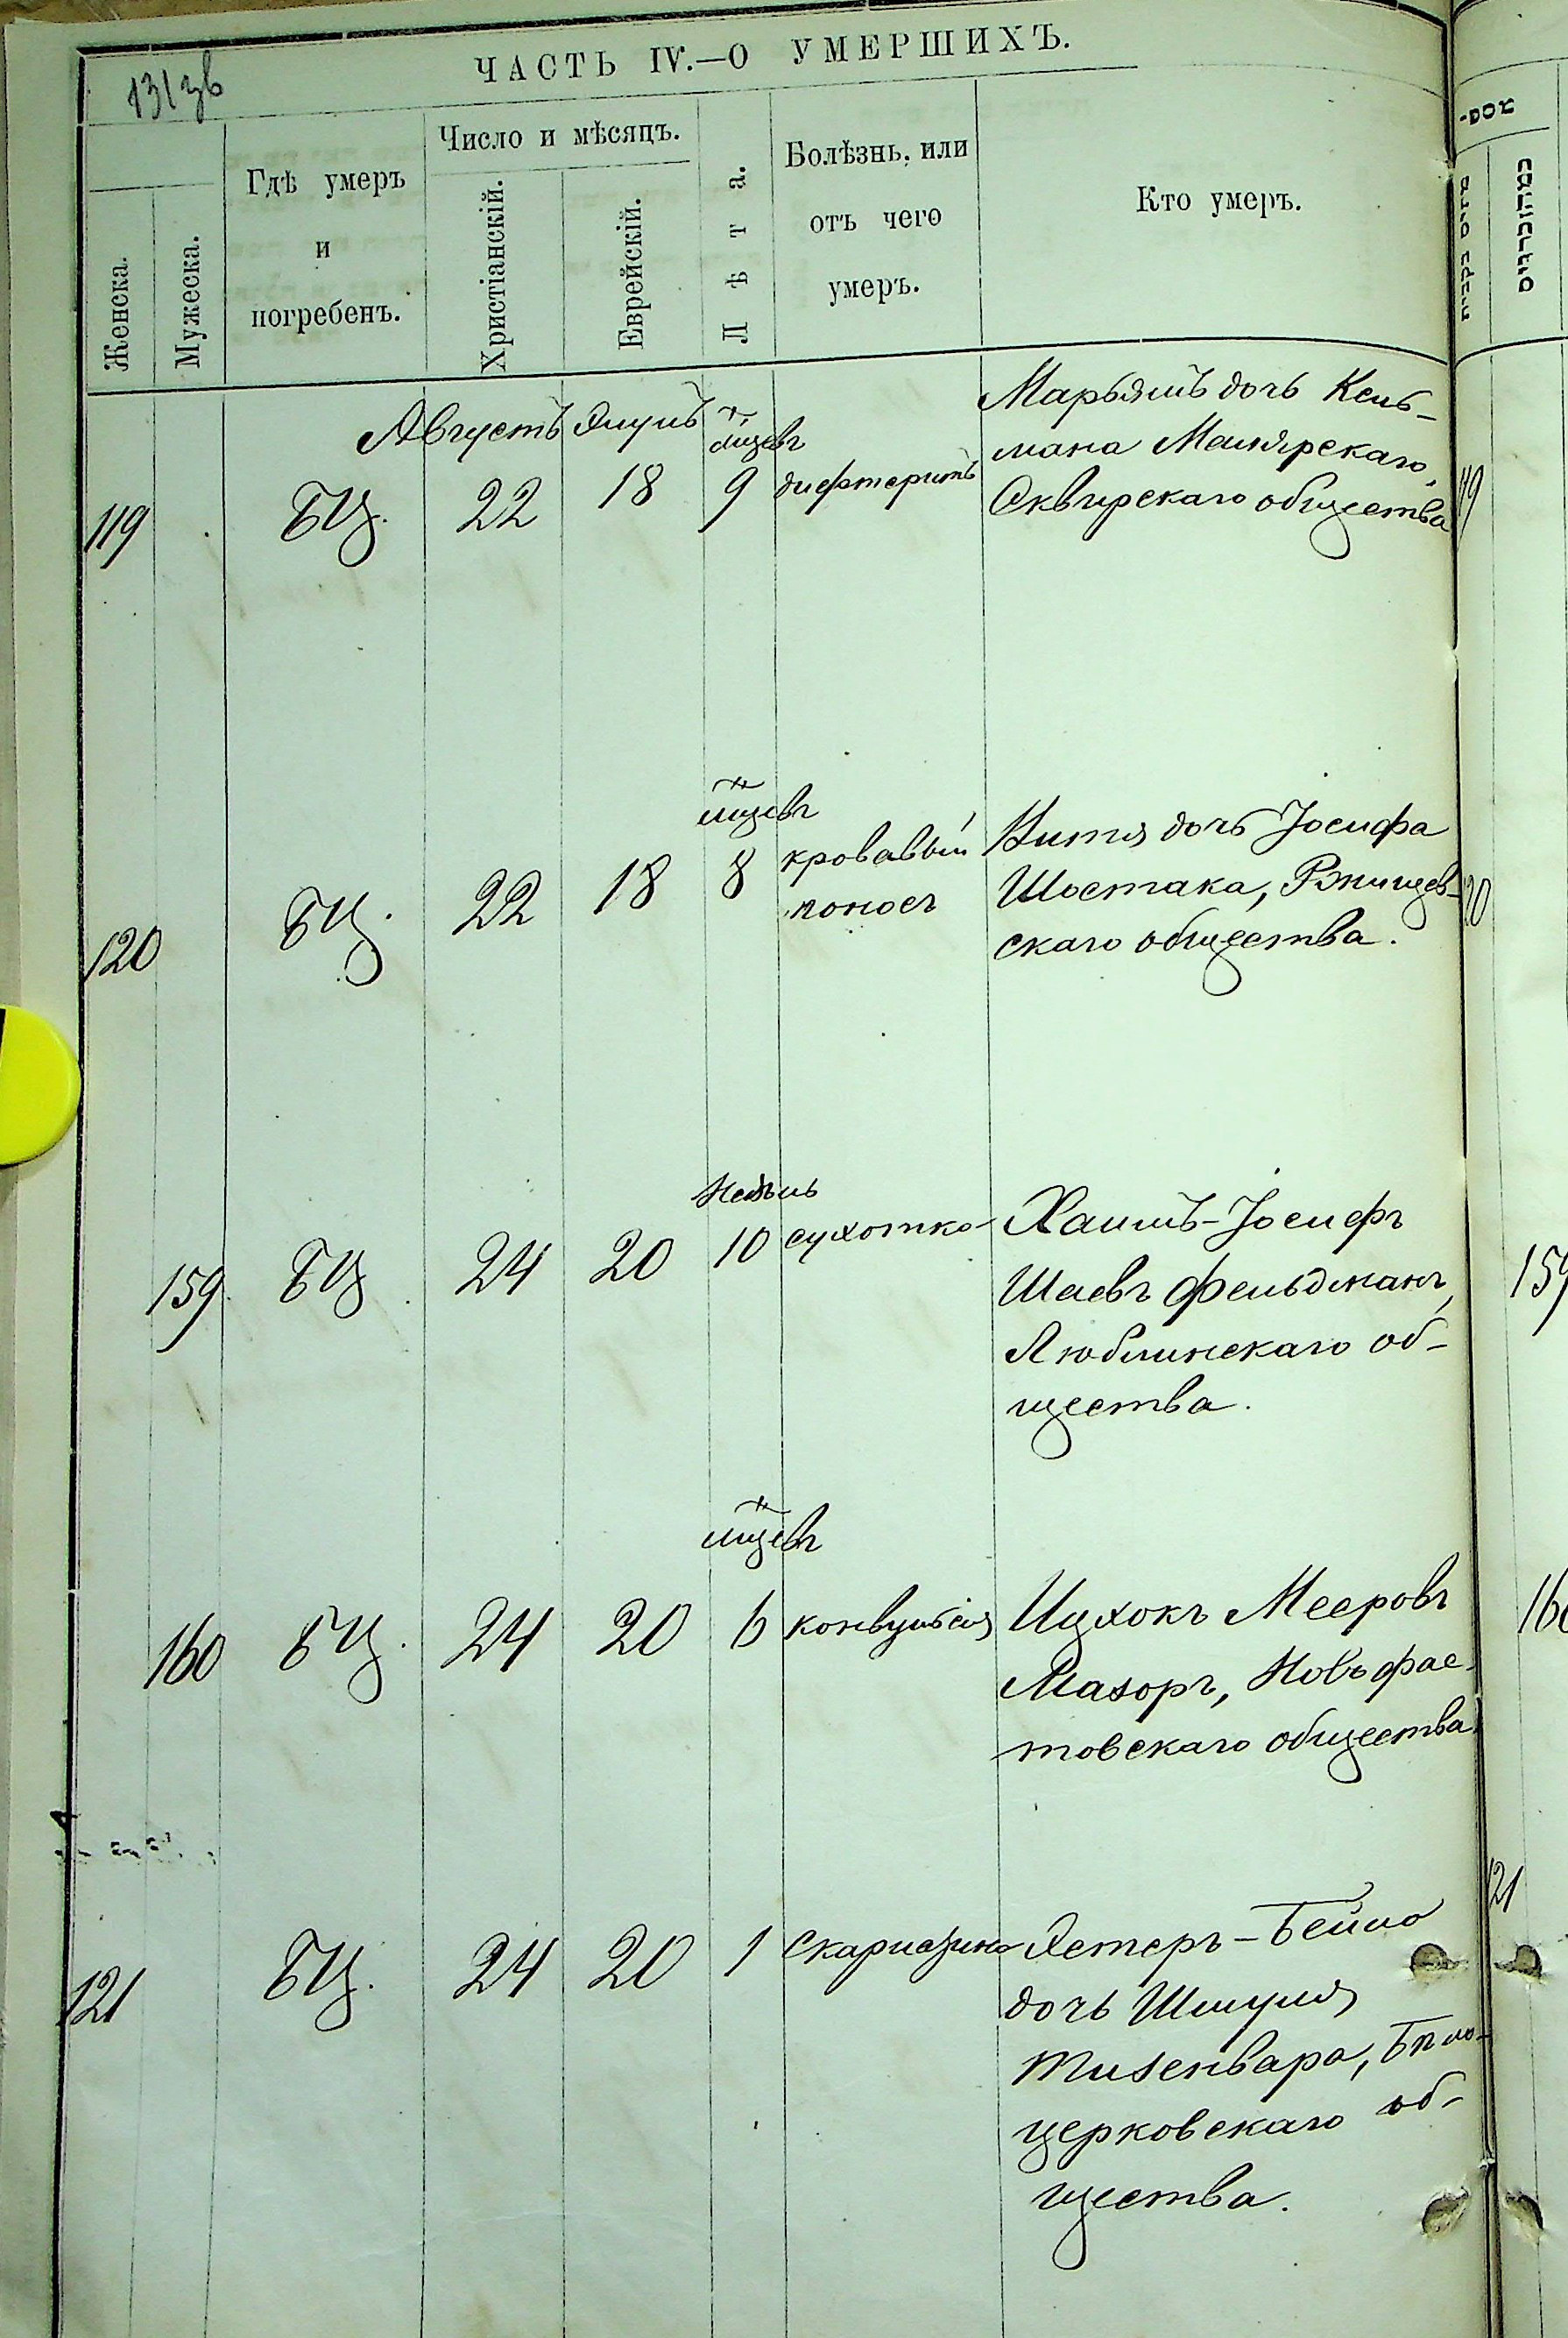 131 зв
ЧАСТЬ IV.—О УМЕРШИХЪ.
Женска.
Мужеска.
Гдѣ умеръ
и
погребенъ.
Число и мѣсяцъ.
Христіанскій.
Еврейскій.
Лѣта.
Болѣзнь, или
отъ чего
умеръ.
Кто умеръ.
Августъ Элулъ мцевъ
119 БЦ. 22 18 9 дифтеритъ
Марьямъ дочь Кель-
мана Малярскаго,
Сквирскаго общества
119
мцевъ
120 БЦ. 22 18 8 кровавый
поносъ
Витя дочь Іосифа
Шостака, Ржищев-
скаго общества.
120
недѣль
159. БЦ. 24 20 10 сухотка
Хаимъ-Іосифъ
Шаевъ Фельдманъ,
Люблинскаго об-
щества.
159
мцевъ
160 БЦ. 24 20 6 конвульсія
Ицхокъ Мееровъ
Мазоръ, Новъфас-
товскаго общества.
160
121 БЦ. 24 20 1 скарлатина
Эстеръ-Бейла
дочь Шмуля
Тизенвара, Бѣло-
церковскаго об-
щества.
121